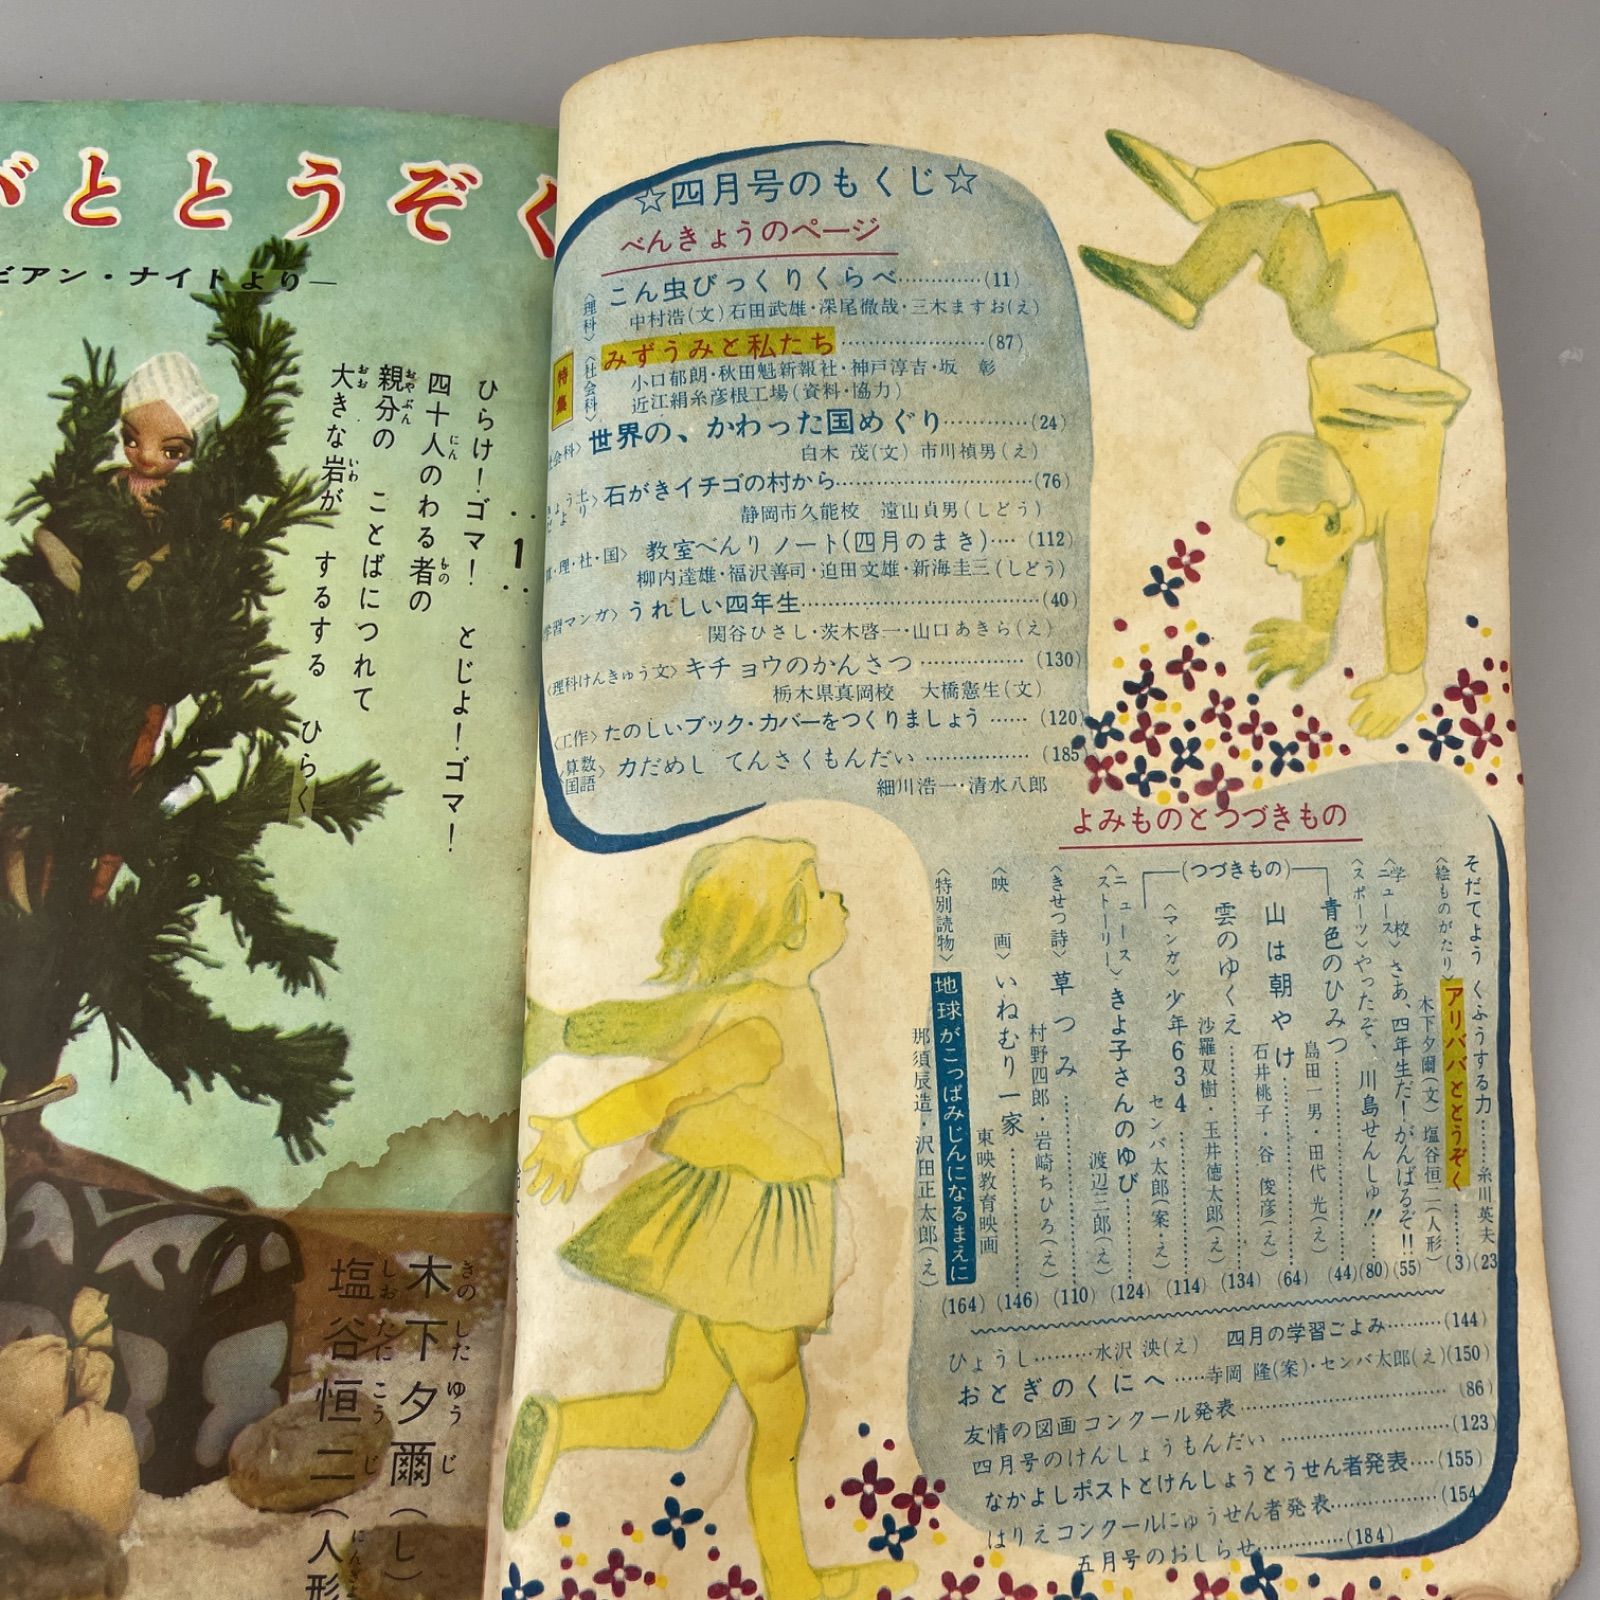 ばととうぞく
ビアン・ナイトより―
1
ひらけ！ゴマ！　とじよ！ゴマ！
四十人のわる者の
親分の　ことばにつれて
大きな岩が　するする　ひらく
木下夕爾（し）
塩谷恒二（人形
☆四月号のもくじ☆
べんきょうのページ
〈理科〉こん虫びっくりくらべ…………(11)
中村浩(文)石田武雄・深尾徹哉・三木ますお(え)
特集〈社会科〉みずうみと私たち…………(87)
小口郁朗・秋田魁新報社・神戸淳吉・坂　彰
近江絹糸彦根工場(資料・協力)
会科〉世界の、かわった国めぐり…………(24)
白木　茂(文)　市川禎男(え)
石がきイチゴの村から…………(76)
静岡市久能校　遠山貞男(しどう)
・理・社・国〉教室べんりノート(四月のまき)…(112)
柳内達雄・福沢善司・迫田文雄・新海圭三(しどう)
学習マンガ〉うれしい四年生…………(40)
関谷ひさし・茨木啓一・山口あきら(え)
〈理科けんきゅう文〉キチョウのかんさつ…………(130)
栃木県真岡校　大橋憲生(文)
〈工作〉たのしいブック・カバーをつくりましょう……(120)
〈算数国語〉力だめし　てんさくもんだい…………(185)
細川浩一・清水八郎
よみものとつづきもの
そだてよう　くふうする力……糸川英夫(23
〈絵ものがたり〉アリババととうぞく……(3)
木下夕爾(文)　塩谷恒二(人形)
〈学校ニュース〉さあ、四年生だ！がんばるぞ!!(55)
〈スポーツ〉やったぞ、川島せんしゅ!!……(80)
(つづきもの)
青色のひみつ…………(44)
島田一男・田代　光(え)
山は朝やけ…………(64)
石井桃子・谷　俊彦(え)
雲のゆくえ…………(134)
沙羅双樹・玉井徳太郎(え)
〈マンガ〉少年634…………(114)
センバ太郎(案・え)
〈ニュースストーリー〉きよ子さんのゆび…………(124)
渡辺三郎(え)
〈きせつ詩〉草つみ…………(110)
村野四郎・岩崎ちひろ(え)
〈映　画〉いねむり一家…………(146)
東映教育映画
〈特別読物〉地球がこっぱみじんになるまえに(164)
那須辰造・沢田正太郎(え)
ひょうし………水沢　泱(え)　四月の学習ごよみ………(144)
おとぎのくにへ……寺岡　隆(案)・センバ太郎(え)(150)
友情の図画コンクール発表…………(86)
四月号のけんしょうもんだい…………(123)
なかよしポストとけんしょうとうせん者発表……(155)
はりえコンクールにゅうせん者発表…………(154
五月号のおしらせ…………(184)